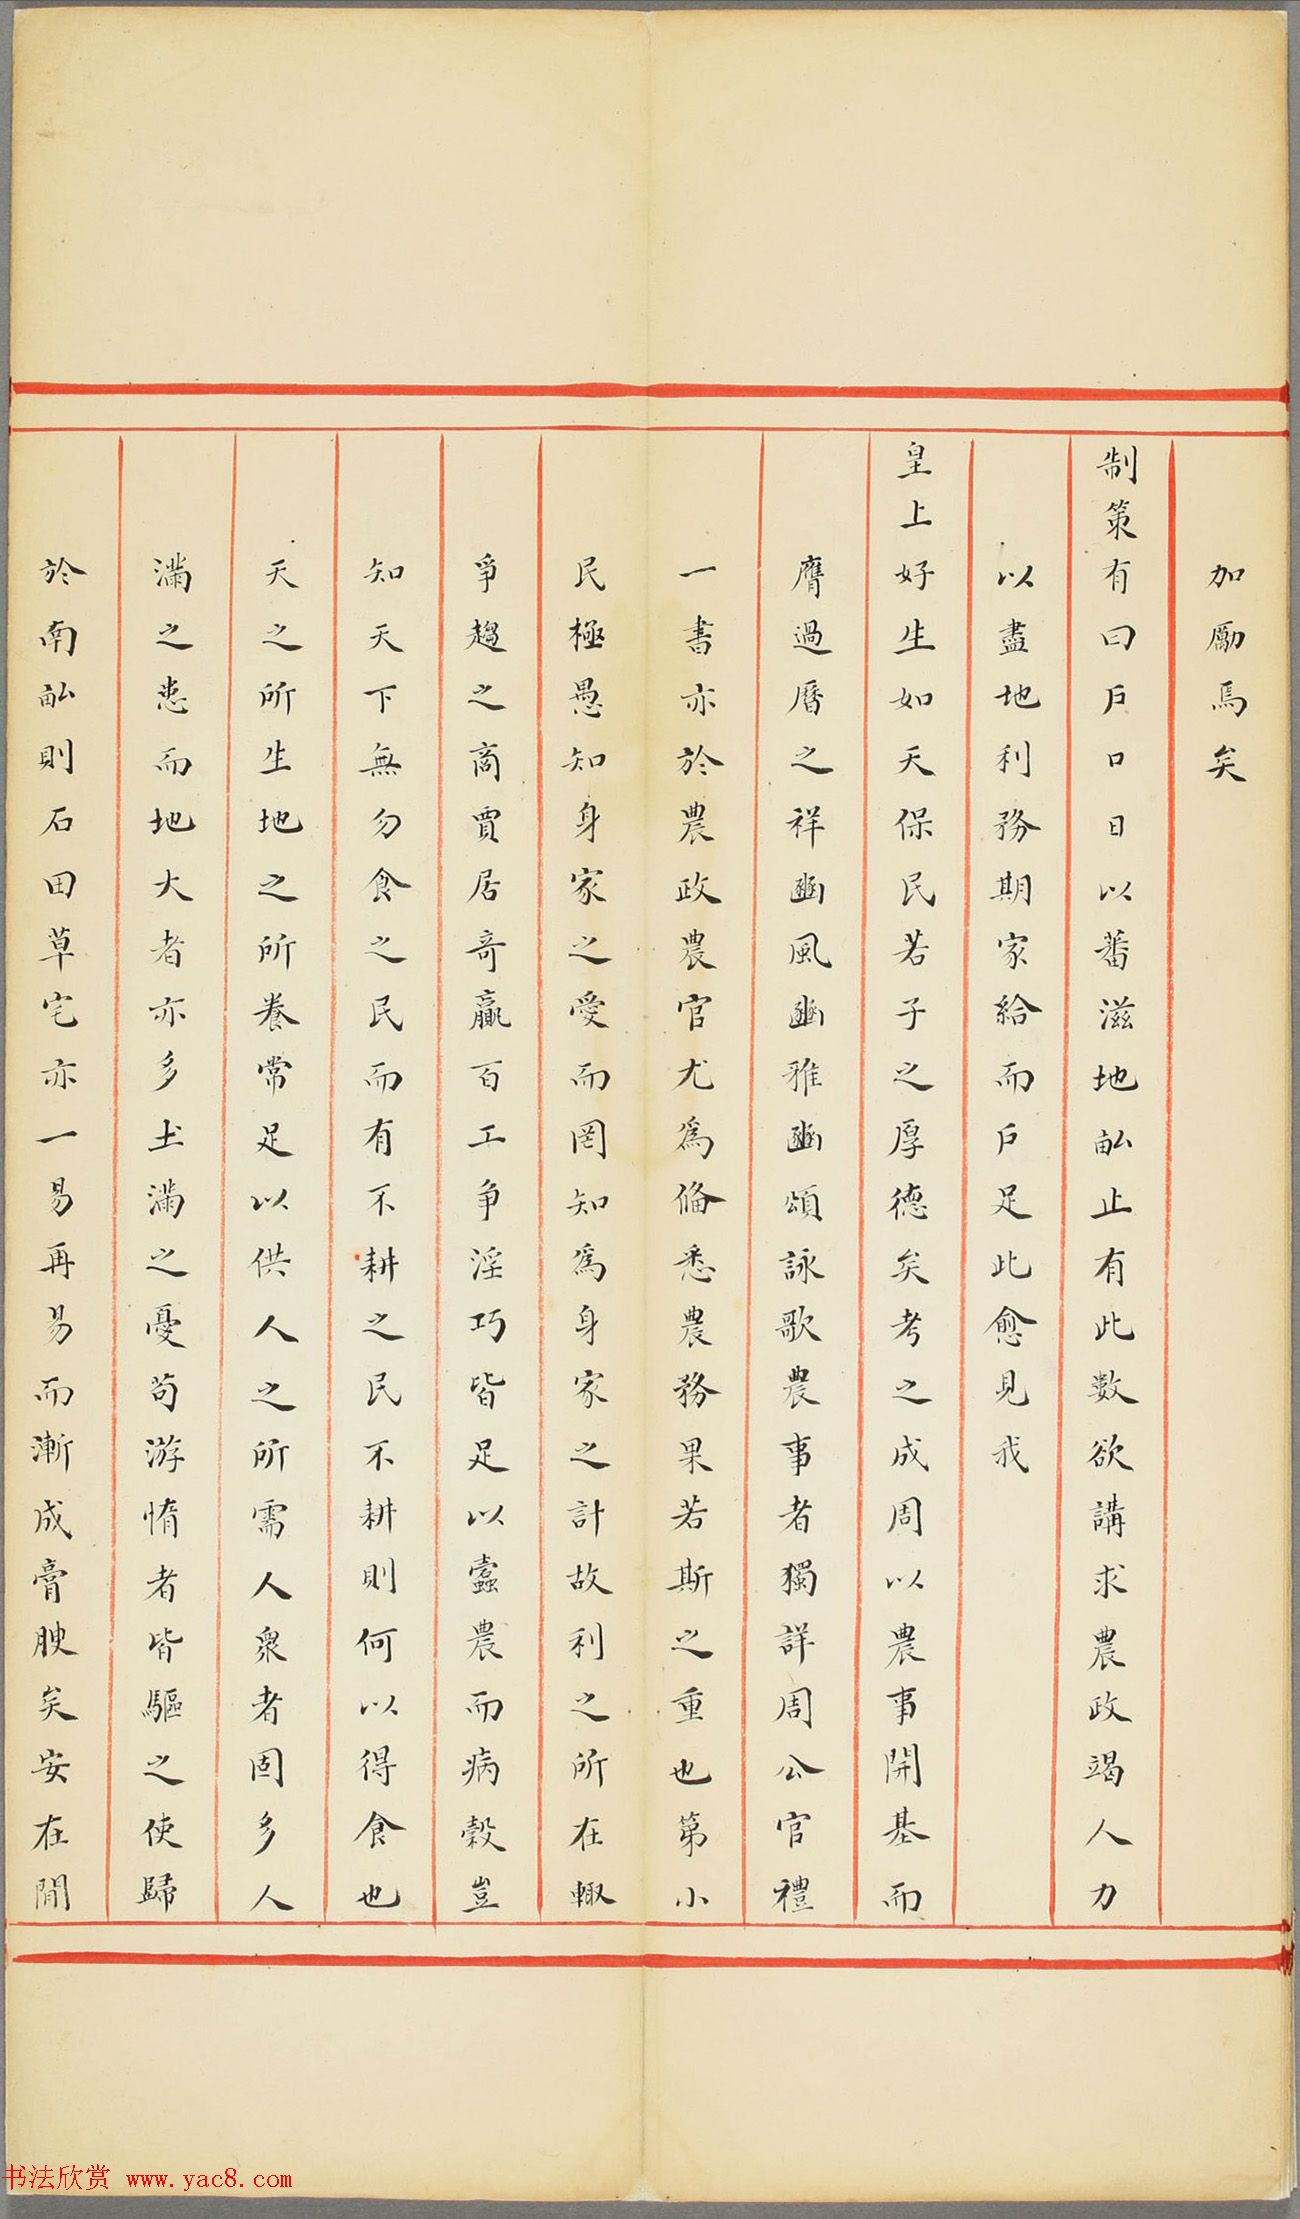 加勵焉矣
制策有曰戶口日以蕃滋地畝止有此數欲講求農政竭人力
以盡地利務期家給而戶足此愈見我
皇上好生如天保民若子之厚德矣考之成周以農事開基而
膺過曆之祥豳風豳雅豳頌詠歌農事者獨詳周公官禮
一書亦於農政農官尤為俻悉農務果若斯之重也第小
民極愚知身家之愛而罔知為身家之計故利之所在輙
爭趨之商賈居奇贏百工爭淫巧皆足以蠹農而病穀豈
知天下無勿食之民而有不耕之民不耕則何以得食也
天之所生地之所養常足以供人之所需人衆者固多人
滿之患而地大者亦多土滿之憂苟游惰者皆驅之使歸
於南畝則石田草宅亦一易再易而漸成膏腴矣安在閒
书法欣赏 www.yac8.com